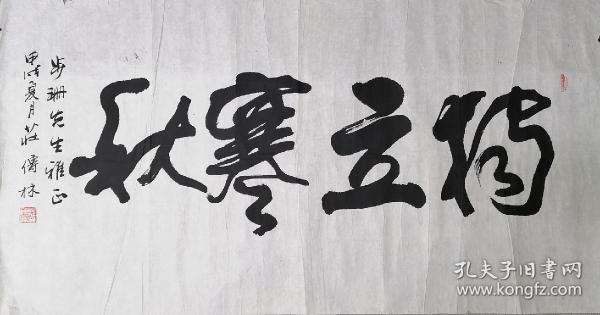 独立寒秋
步珊先生雅正
甲戌夏月庄传林
孔夫子旧书网
www.kongfz.com